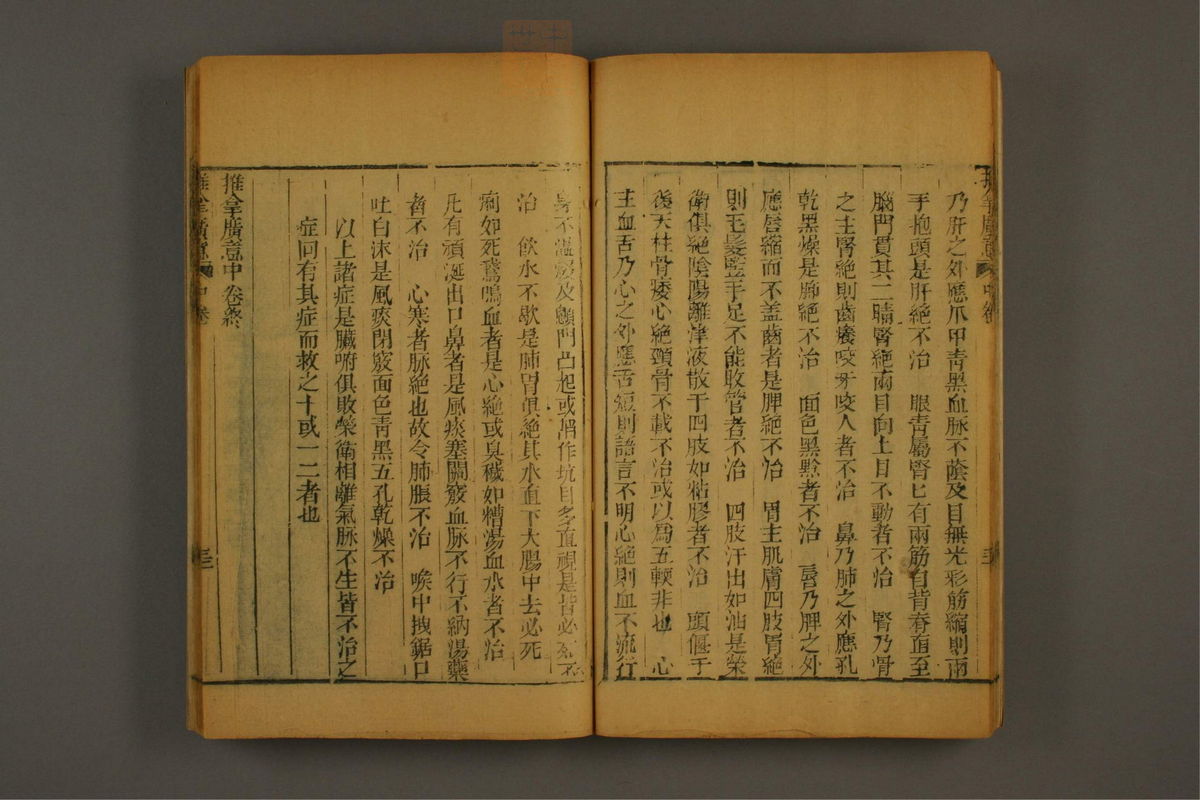 乃肝之外應爪甲靑黑血脉不蔭及目無光形筋縮則兩
手抱頭是肝絕不治　眼靑屬腎匕有兩筋自背脊直至
腦門貫其二睛腎絕兩目向上目不動者不治　腎乃骨
之主腎絕則齒癢咬牙咬人者不治　鼻乃肺之外應孔
乾黑燥是肺絕不治　面色黑黔者不治　唇乃脾之外
應唇縮而不盖齒者是脾絕不治　胃主肌膚四肢胃絕
則毛髮竪手足不能收管者不治　四肢汗出如油是榮
衛俱絕陰陽離津液散于四肢如粘膠者不治　頭偃于
後天柱骨痿心絕頸骨不載不治或以爲五軟非也　心
主血舌乃心之外應舌短則語言不明心絕則血不流行
身不溫煖及顖門凸起或陷作坑目多直視是皆必死不
治　飮水不歇是肺胃俱絕其水直下大腸中去必死
痢如死鵞鴨血者是心絕或臭穢如糟湯血水者不治
凡有頑涎出口鼻者是風痰塞關竅血脉不行不納湯藥
者不治　心寒者脉絕也故令肺脹不治　喉中拽鋸口
吐白沫是風痰閉竅面色靑黑五孔乾燥不治
以上諸症是臟腑俱敗榮衛相離氣脉不生皆不治之
症間有其症而救之十或一二者也
推拿廣意中卷終
推拿廣意　中卷　三